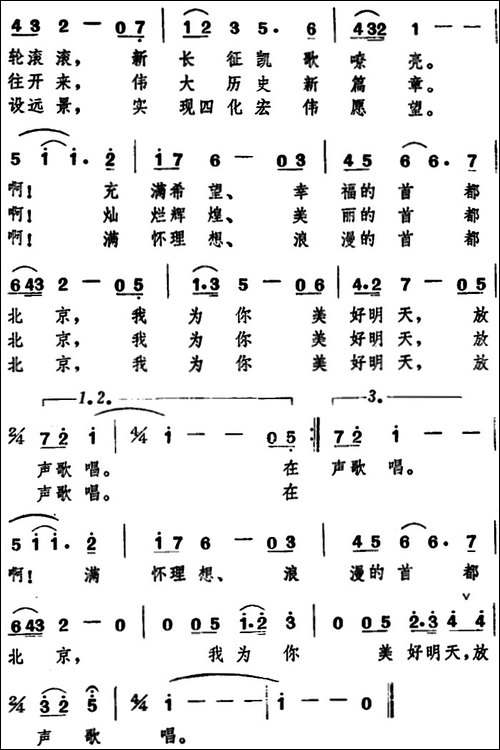 4 3 2 — 0 7 | 1 2 3 5. 6 | 432 1 — —
轮滚滚， 新 长 征凯 歌 嘹 亮。
往开来， 伟 大 历史 新 篇 章。
设远景， 实 现四化宏 伟 愿 望。
5 i i. 2 | i 7 6 — 0 3 | 4 5 6 6. 7
啊！ 充 满希 望、 幸 福的 首 都
啊！ 灿 烂辉 煌、 美 丽的 首 都
啊！ 满 怀理 想、 浪 漫的 首 都
643 2 — 0 5 | 1.3 5 — 0 6 | 4.2 7 — 0 5
北 京， 我 为 你 美 好明 天， 放
北 京， 我 为 你 美 好明 天， 放
北 京， 我 为 你 美 好明 天， 放
1. 2. 3.
2/4 7 2 i | 4/4 i — — 0 5 :‖ 7 2 i — —
声歌 唱。 在 声歌 唱。
声歌 唱。 在
5 i i. 2 | i 7 6 — 0 3 | 4 5 6 6. 7
啊！ 满 怀理 想、 浪 漫的 首 都
643 2 — 0 | 0 0 5 1.2 3 | 0 0 5 2.3 4 4
北 京， 我为 你 美 好明天，放
2/4 3 2 5 | 4/4 i — — — | i — — 0 ‖
声 歌 唱。